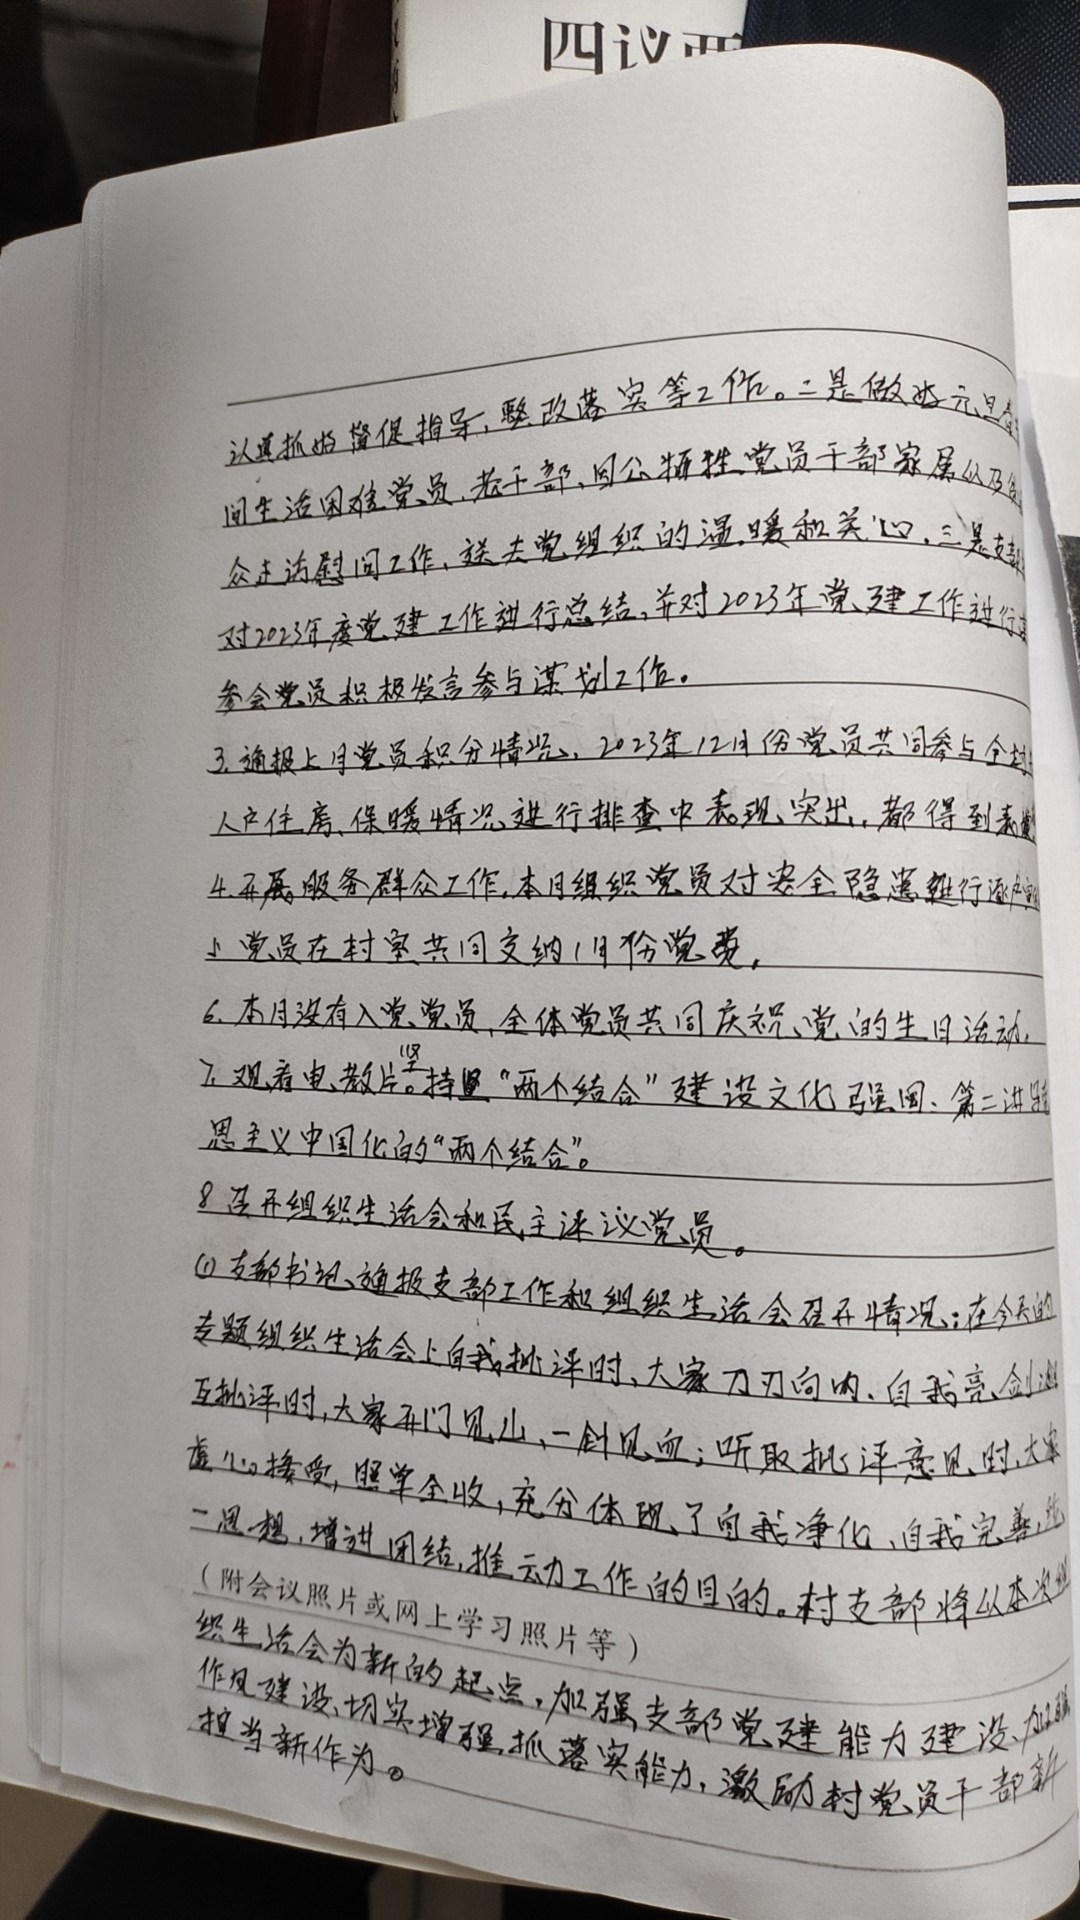 四议两
认真抓好督促指导,整改落实等工作。二是做好元旦春
间生活困难党员、老干部、因公牺牲党员干部家属以及
众走访慰问工作,送去党组织的温暖和关心。三是支部
对2023年度党建工作进行总结,并对2023年党建工作进行
参会党员积极发言参与谋划工作。
3.通报上月党员积分情况、2023年12月份党员共同参与全村
人户住房、保暖情况进行排查中表现突出,都得到表
4.开展服务群众工作。本月组织党员对安全隐患进行逐户
5.党员在村室共同交纳1月份党费。
6.本月没有入党党员,全体党员共同庆祝党的生日活动。
7.观看电教片。坚持“两个结合”建设文化强国、第二讲
思主义中国化的“两个结合”。
8召开组织生活会和民主评议党员。
①支部书记通报支部工作和组织生活会召开情况;在今天的
专题组织生活会上自我批评时、大家刀刃向内、自我亮剑
互批评时,大家开门见山、一针见血;听取批评意见时,大家
虚心接受,照单全收,充分体现了自我净化、自我完善,统
一思想,增进团结,推动工作的目的。村支部将以本次组
(附会议照片或网上学习照片等)
织生活会为新的起点,加强支部党建能力建设、加强
作风建设、切实增强抓落实能力,激励村党员干部新
担当新作为。